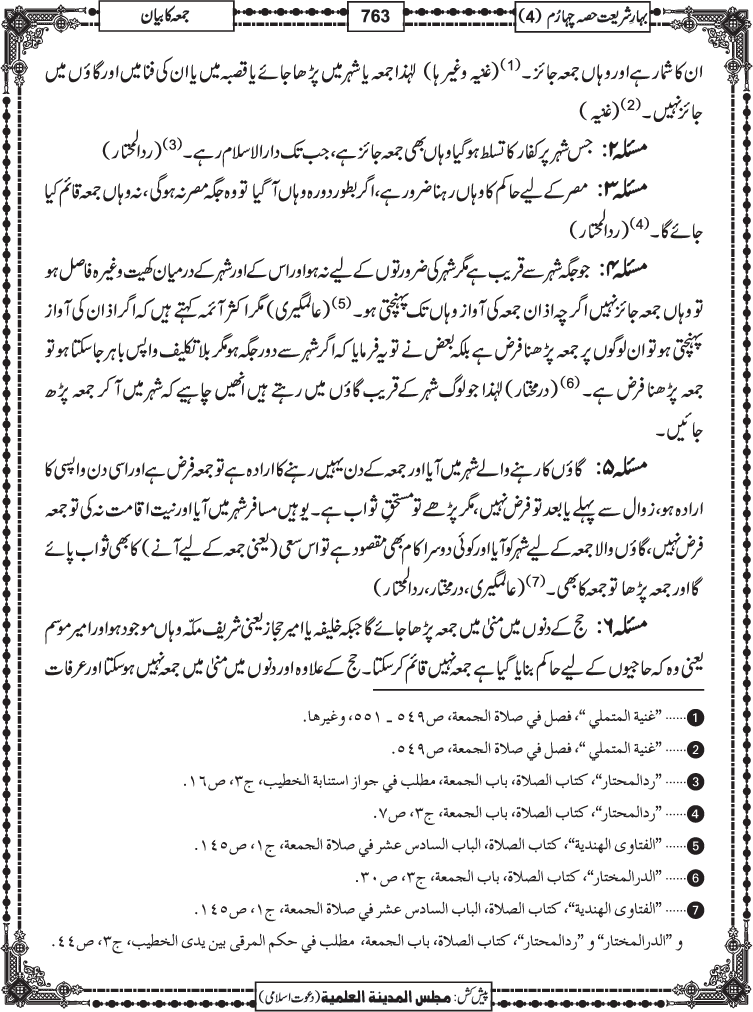 بہارِ شریعت حصہ چہارم (4)
763
جمعہ کا بیان
ان کا شمار ہے اور وہاں جمعہ جائز۔(1) (غنیہ وغیرہا) لہٰذا جمعہ یا شہر میں پڑھا جائے یا قصبہ میں یا ان کی فنا میں اور گاؤں میں
جائز نہیں۔(2) (غنیہ)
مسئلہ ۲: جس شہر پر کفار کا تسلط ہوگیا وہاں بھی جمعہ جائز ہے، جب تک دارالاسلام رہے۔(3) (ردالمحتار)
مسئلہ ۳: مصر کے لیے حاکم کا وہاں رہنا ضرور ہے، اگر بطور دورہ وہاں آ گیا تو وہ جگہ مصر نہ ہوگی، نہ وہاں جمعہ قائم کیا
جائے گا۔(4) (ردالمحتار)
مسئلہ ۴: جو جگہ شہر سے قریب ہے مگر شہر کی ضرورتوں کے لیے نہ ہو اور اس کے اور شہر کے درمیان کھیت وغیرہ فاصل ہو
تو وہاں جمعہ جائز نہیں اگرچہ اذان جمعہ کی آواز وہاں تک پہنچتی ہو۔(5) (عالمگیری) مگر اکثر آئمہ کہتے ہیں کہ اگر اذان کی آواز
پہنچتی ہو تو ان لوگوں پر جمعہ پڑھنا فرض ہے بلکہ بعض نے تو یہ فرمایا کہ اگر شہر سے دور جگہ ہو مگر بلا تکلیف واپس باہر جا سکتا ہو تو
جمعہ پڑھنا فرض ہے۔(6) (درمختار) لہٰذا جو لوگ شہر کے قریب گاؤں میں رہتے ہیں انھیں چاہیے کہ شہر میں آ کر جمعہ پڑھ
جائیں۔
مسئلہ ۵: گاؤں کا رہنے والا شہر میں آیا اور جمعہ کے دن یہیں رہنے کا ارادہ ہے تو جمعہ فرض ہے اور اسی دن واپسی کا
ارادہ ہو، زوال سے پہلے یا بعد تو فرض نہیں، مگر پڑھے تو مستحقِ ثواب ہے۔ یوہیں مسافر شہر میں آیا اور نیت اقامت نہ کی تو جمعہ
فرض نہیں، گاؤں والا جمعہ کے لیے شہر کو آیا اور کوئی دوسرا کام بھی مقصود ہے تو اس سعی (یعنی جمعہ کے لیے آنے) کا بھی ثواب پائے
گا اور جمعہ پڑھا تو جمعہ کا بھی۔(7) (عالمگیری، درمختار، ردالمحتار)
مسئلہ ۶: حج کے دنوں میں منیٰ میں جمعہ پڑھا جائے گا جبکہ خلیفہ یا امیر حجاز یعنی شریف مکّہ وہاں موجود ہو اور امیر موسم
یعنی وہ کہ حاجیوں کے لیے حاکم بنایا گیا ہے جمعہ نہیں قائم کر سکتا۔ حج کے علاوہ اور دنوں میں منیٰ میں جمعہ نہیں ہو سکتا اور عرفات
1 ...... ”غنیة المتملي“، فصل في صلاة الجمعة، ص٥٤٩ ـ ٥٥١، وغيرها.
2 ...... ”غنية المتملي“، فصل في صلاة الجمعة، ص٥٤٩.
3 ...... ”ردالمحتار“، كتاب الصلاة، باب الجمعة، مطلب في جواز استنابة الخطيب، ج٣، ص١٦.
4 ...... ”ردالمحتار“، كتاب الصلاة، باب الجمعة، ج٣، ص٧.
5 ...... ”الفتاوى الهندية“، كتاب الصلاة، الباب السادس عشر في صلاة الجمعة، ج١، ص١٤٥.
6 ...... ”الدرالمختار“، كتاب الصلاة، باب الجمعة، ج٣، ص٣٠.
7 ...... ”الفتاوى الهندية“، كتاب الصلاة، الباب السادس عشر في صلاة الجمعة، ج١، ص١٤٥.
و ”الدرالمختار“ و ”ردالمحتار“، كتاب الصلاة، باب الجمعة، مطلب في حكم المرقى بين يدى الخطيب، ج٣، ص٤٤.
پیش کش: مجلس المدینة العلمیة (دعوت اسلامی)